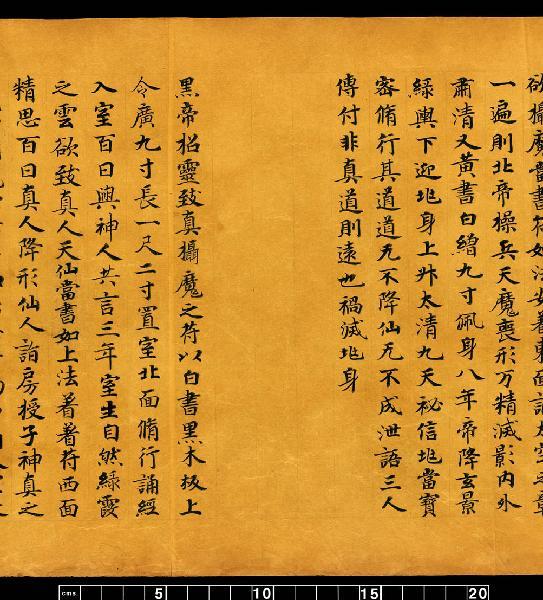 欲攝魔當書符如法安著東面誦太空之章
一遍則北帝操兵天魔喪形万精滅影內外
肅清又黃書白繒九寸佩身八年帝降玄景
綠輿下迎兆身上升太清九天祕信兆當寶
密脩行其道道无不降仙无不成泄語三人
傳付非真道則遠也禍滅兆身
黑帝招靈致真攝魔之符以白書黑木板上
令廣九寸長一尺二寸置室北面脩行誦經
入室百日與神人共言三年室生自然綠霞
之雲欲致真人天仙當書如上法著著符西面
精思百日真人降形仙人詣房授子神真之
cms 5 10 15 20